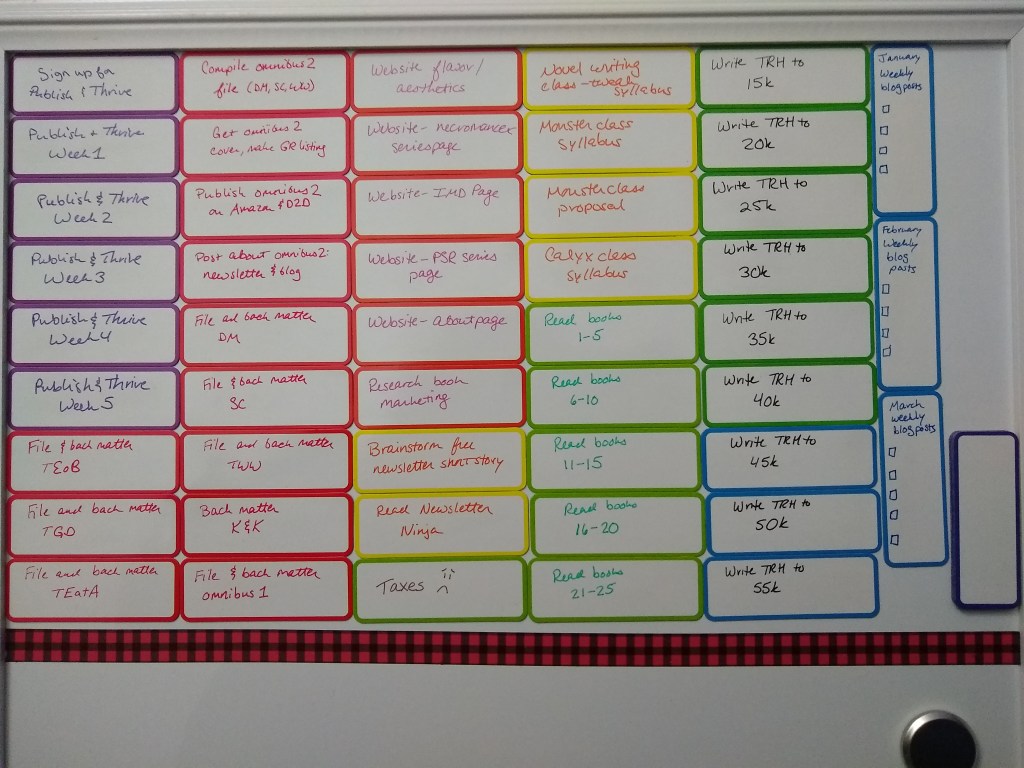 Sign up for
Publish & Thrive
Publish + Thrive
Week 1
Publish & Thrive
Week 2
Publish & Thrive
Week 3
Publish & Thrive
Week 4
Publish & Thrive
Week 5
File & back matter
TEoB
File and back matter
TGD
File and back matter
TEatA
Compile omnibus 2
file (DM, SC, WW)
Get omnibus 2
cover, make GR listing
Publish omnibus 2
on Amazon & D2D
Post about omnibus 2:
newsletter & blog
File and back matter
DM
File & back matter
SC
File and back matter
TWW
Back matter
K&K
File & back matter
omnibus 1
Website flavor/
aesthetics
Website - necromancer
series page
Website - IMD Page
Website - PSR series
page
Website - about page
Research book
marketing
Brainstorm free
newsletter short story
Read Newsletter
Ninja
Taxes
Novel writing
class - tweak
syllabus
Monster class
Syllabus
Monster class
proposal
Calyx class
syllabus
Read books
1-5
Read books
6-10
Read books
11-15
Read books
16-20
Read books
21-25
Write TRH to
15k
Write TRH to
20k
Write TRH to
25k
Write TRH to
30k
Write TRH to
35k
Write TRH to
40k
Write TRH to
45k
Write TRH to
50k
Write TRH to
55k
January
Weekly
blog posts
February
Weekly
blog
posts
March
weekly
blog posts